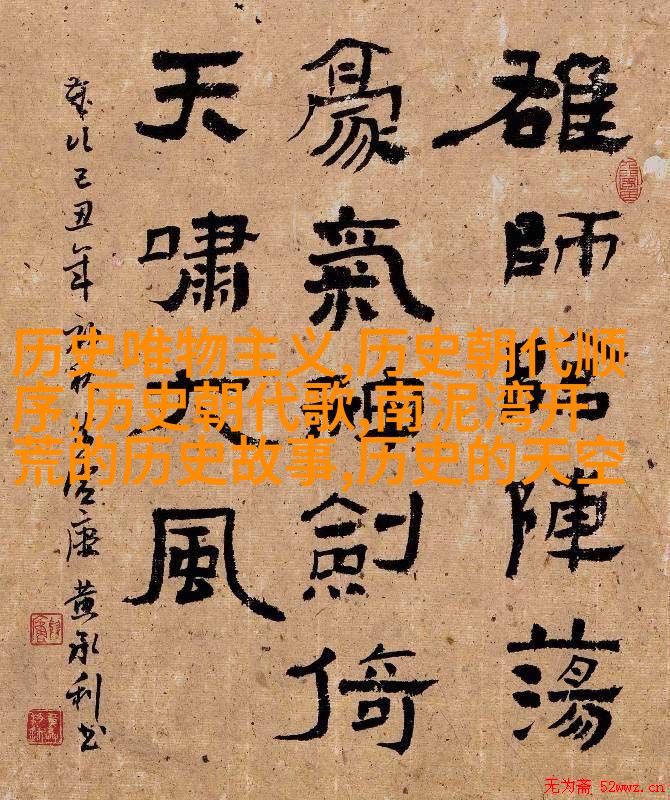 雄師陣蕩
豪氣劍倚
天嘯大風
歲次己丑年 黄承利书
历史唯物主义,历史朝代顺
序,历史朝代歌,南泥湾开
荒的历史故事,历史的天空
无为斋 52wwz.cn